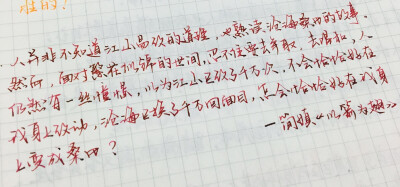 人并非不知道江山易改的道理，也熟读沧海桑田的故事。
然而，面对繁花似锦的世间，忍不住要去争取，去爱恋，人
仍然有一丝憧憬，以为江山已改了千万次，不会恰恰好在
我身上改动，沧海已换了千万回面目，怎会恰恰好在我身
上变成桑田？
—简媜《以箭为翅》